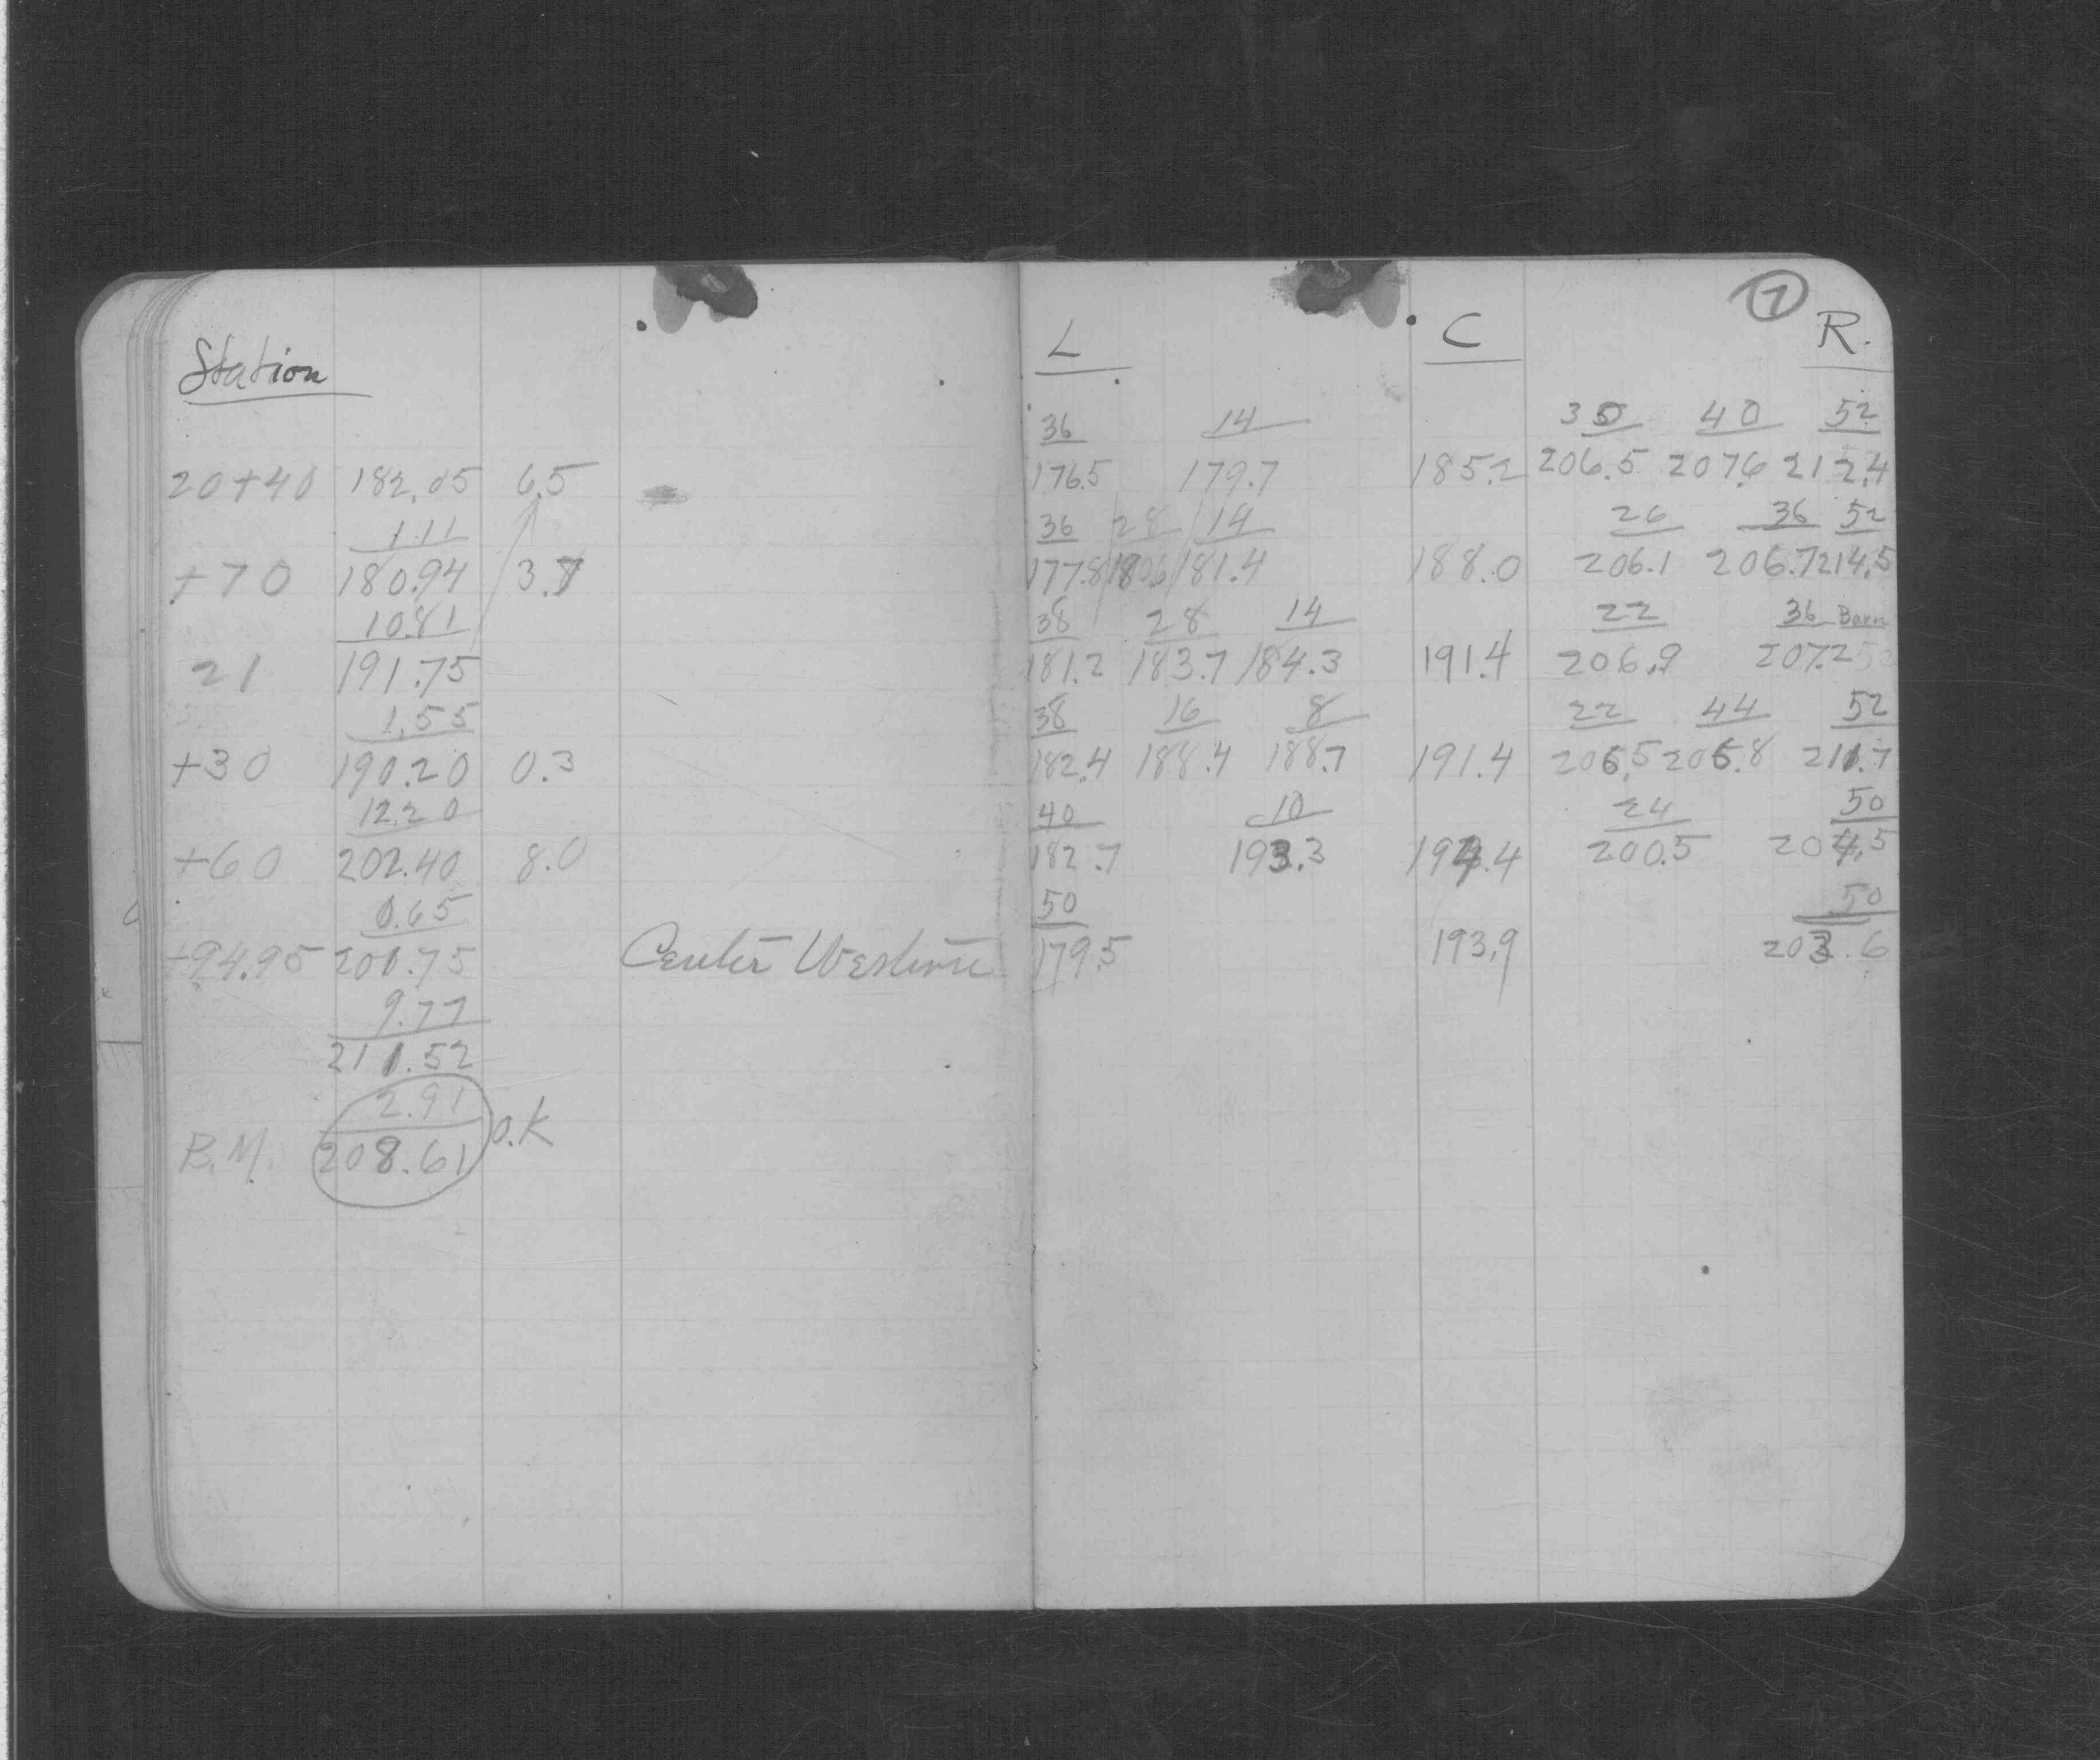 7
Station
L C R.
36 14 30 40 52
20+40 182.05 6.5 176.5 179.7 185.2 206.5 207.6 212.4
1.11 36 28 14 26 36 52
+70 180.94 3.7 177.8 180.6 181.4 188.0 206.1 206.7 214.5
10.81 38 28 14 22 36 Barn
21 191.75 181.2 183.7 184.3 191.4 206.9 207.2 52
1.55 38 16 8 22 44 52
+30 190.20 0.3 182.4 188.4 188.7 191.4 206.5 206.8 211.7
12.20 40 10 24 50
+60 202.40 8.0 182.7 193.3 194.4 200.5 204.5
0.65 50 50
+94.95 201.75 Center Western 179.5 193.9 203.6
9.77
211.52
2.91
B.M. 208.61 O.K